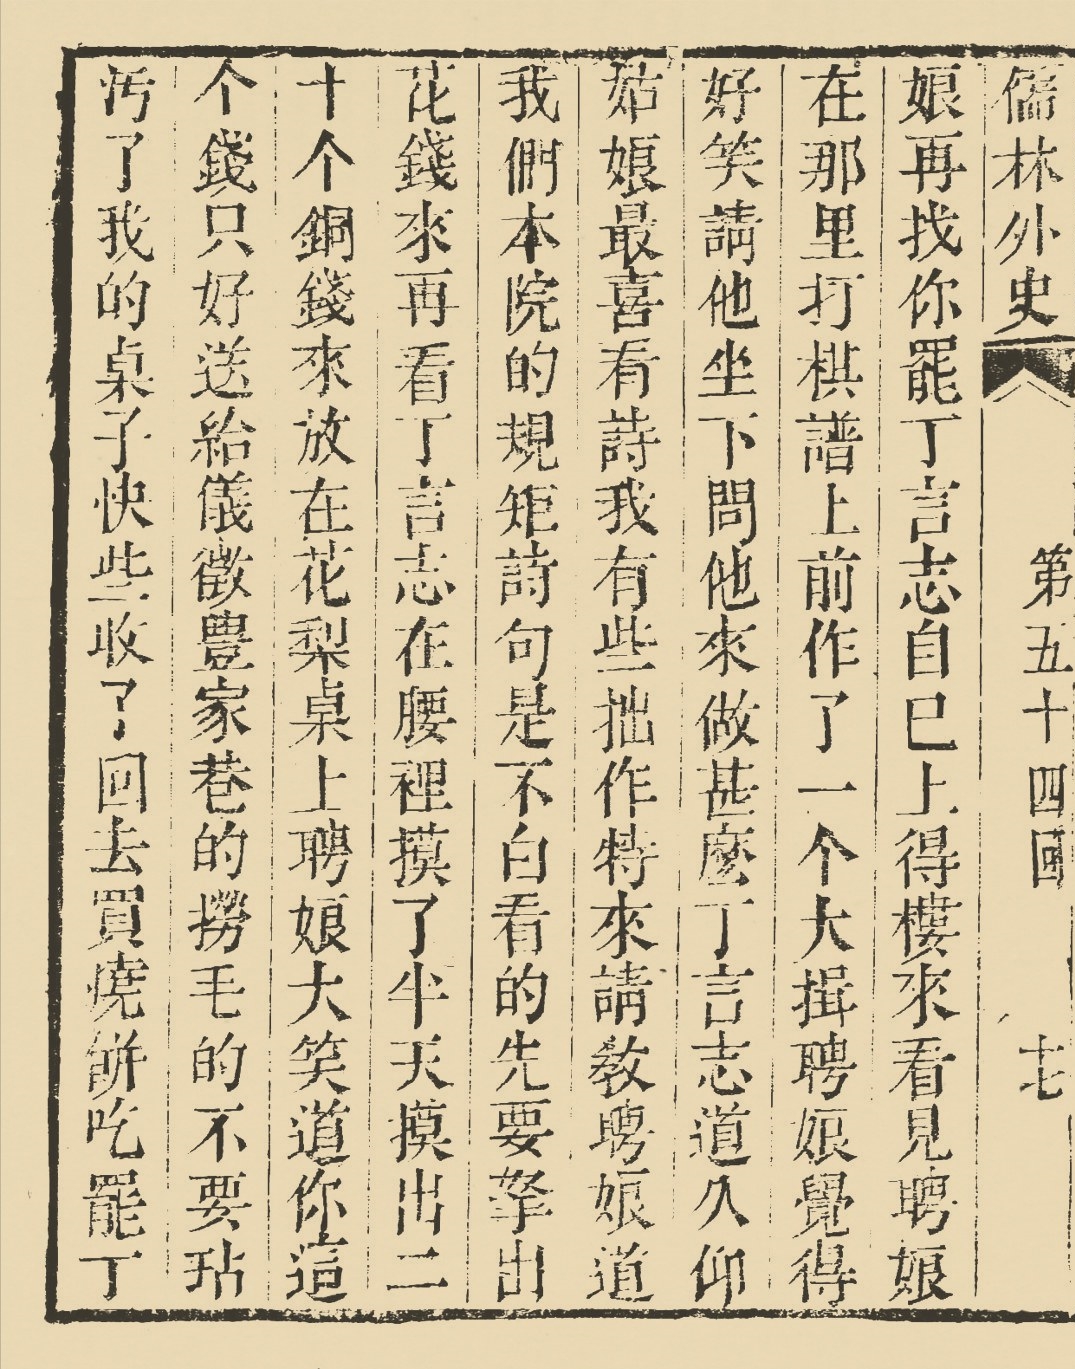 儒林外史　第五十四囘　七
娘再找你罷丁言志自巳上得樓來看見聘娘
在那里打棋譜上前作了一个大揖聘娘覺得
好笑請他坐下問他來做甚麽丁言志道久仰
姑娘最喜看詩我有些拙作特來請敎聘娘道
我們本院的規矩詩句是不白看的先要拏出
花錢來再看丁言志在腰裡摸了半天摸出二
十个銅錢來放在花梨桌上聘娘大笑道你這
个錢只好送給儀徵豊家巷的撈毛的不要玷
汚了我的桌子快些收了回去買燒餅吃罷丁